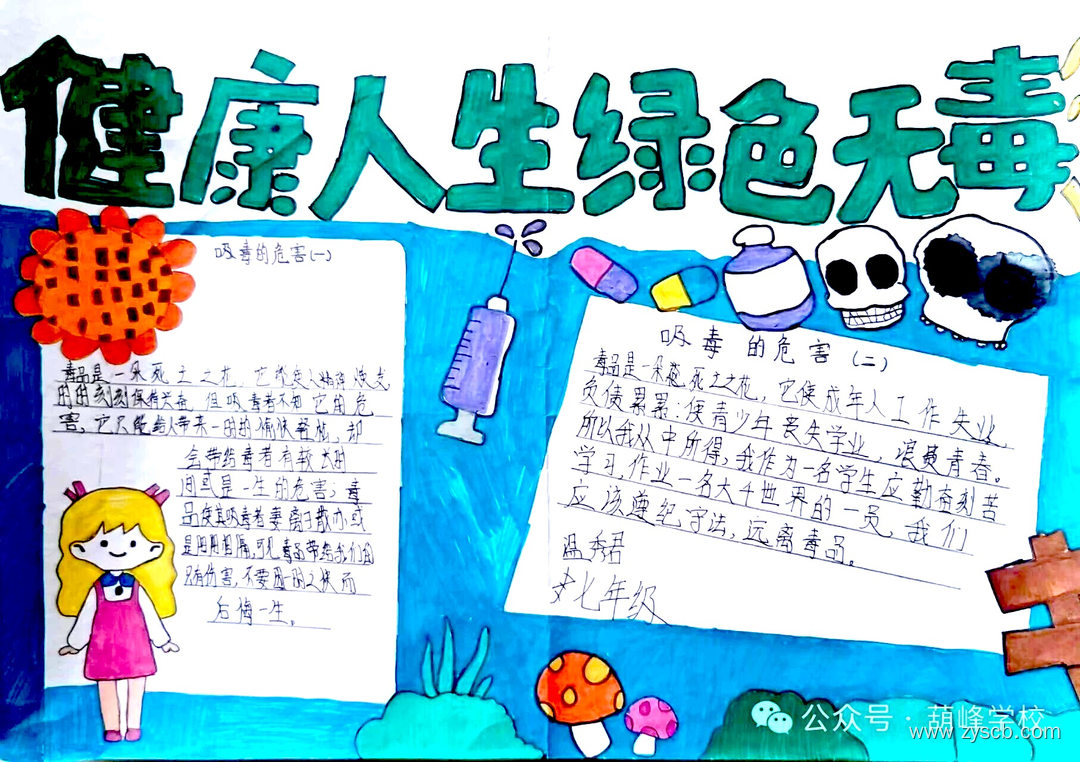 健康人生绿色无毒
吸毒的危害(一)
毒品是一朵死土之花,它
时时刻刻保有兴奋,但吸毒者不知它的危
害,它只能给人带来一时的愉快轻松,却
会带给毒者有较长时
间或是一生的危害;毒
品使其吸毒者妻离
是阴阳相隔,可见毒品带给我们的
只有伤害,不要因一时之快而
后悔一生。
吸毒的危害(二)
毒品是一朵 死土之花,它使成年人工作失业,
负债累累;使青少年丧失学业,浪费青春。
所以我从中所得,我作为一名学生应勤奋刻苦
学习,作业一名大千世界的一员,我们
应该遵纪守法,远离毒品。
温秀君
七年级
公众号·葫峰学校
www.zyscb.com